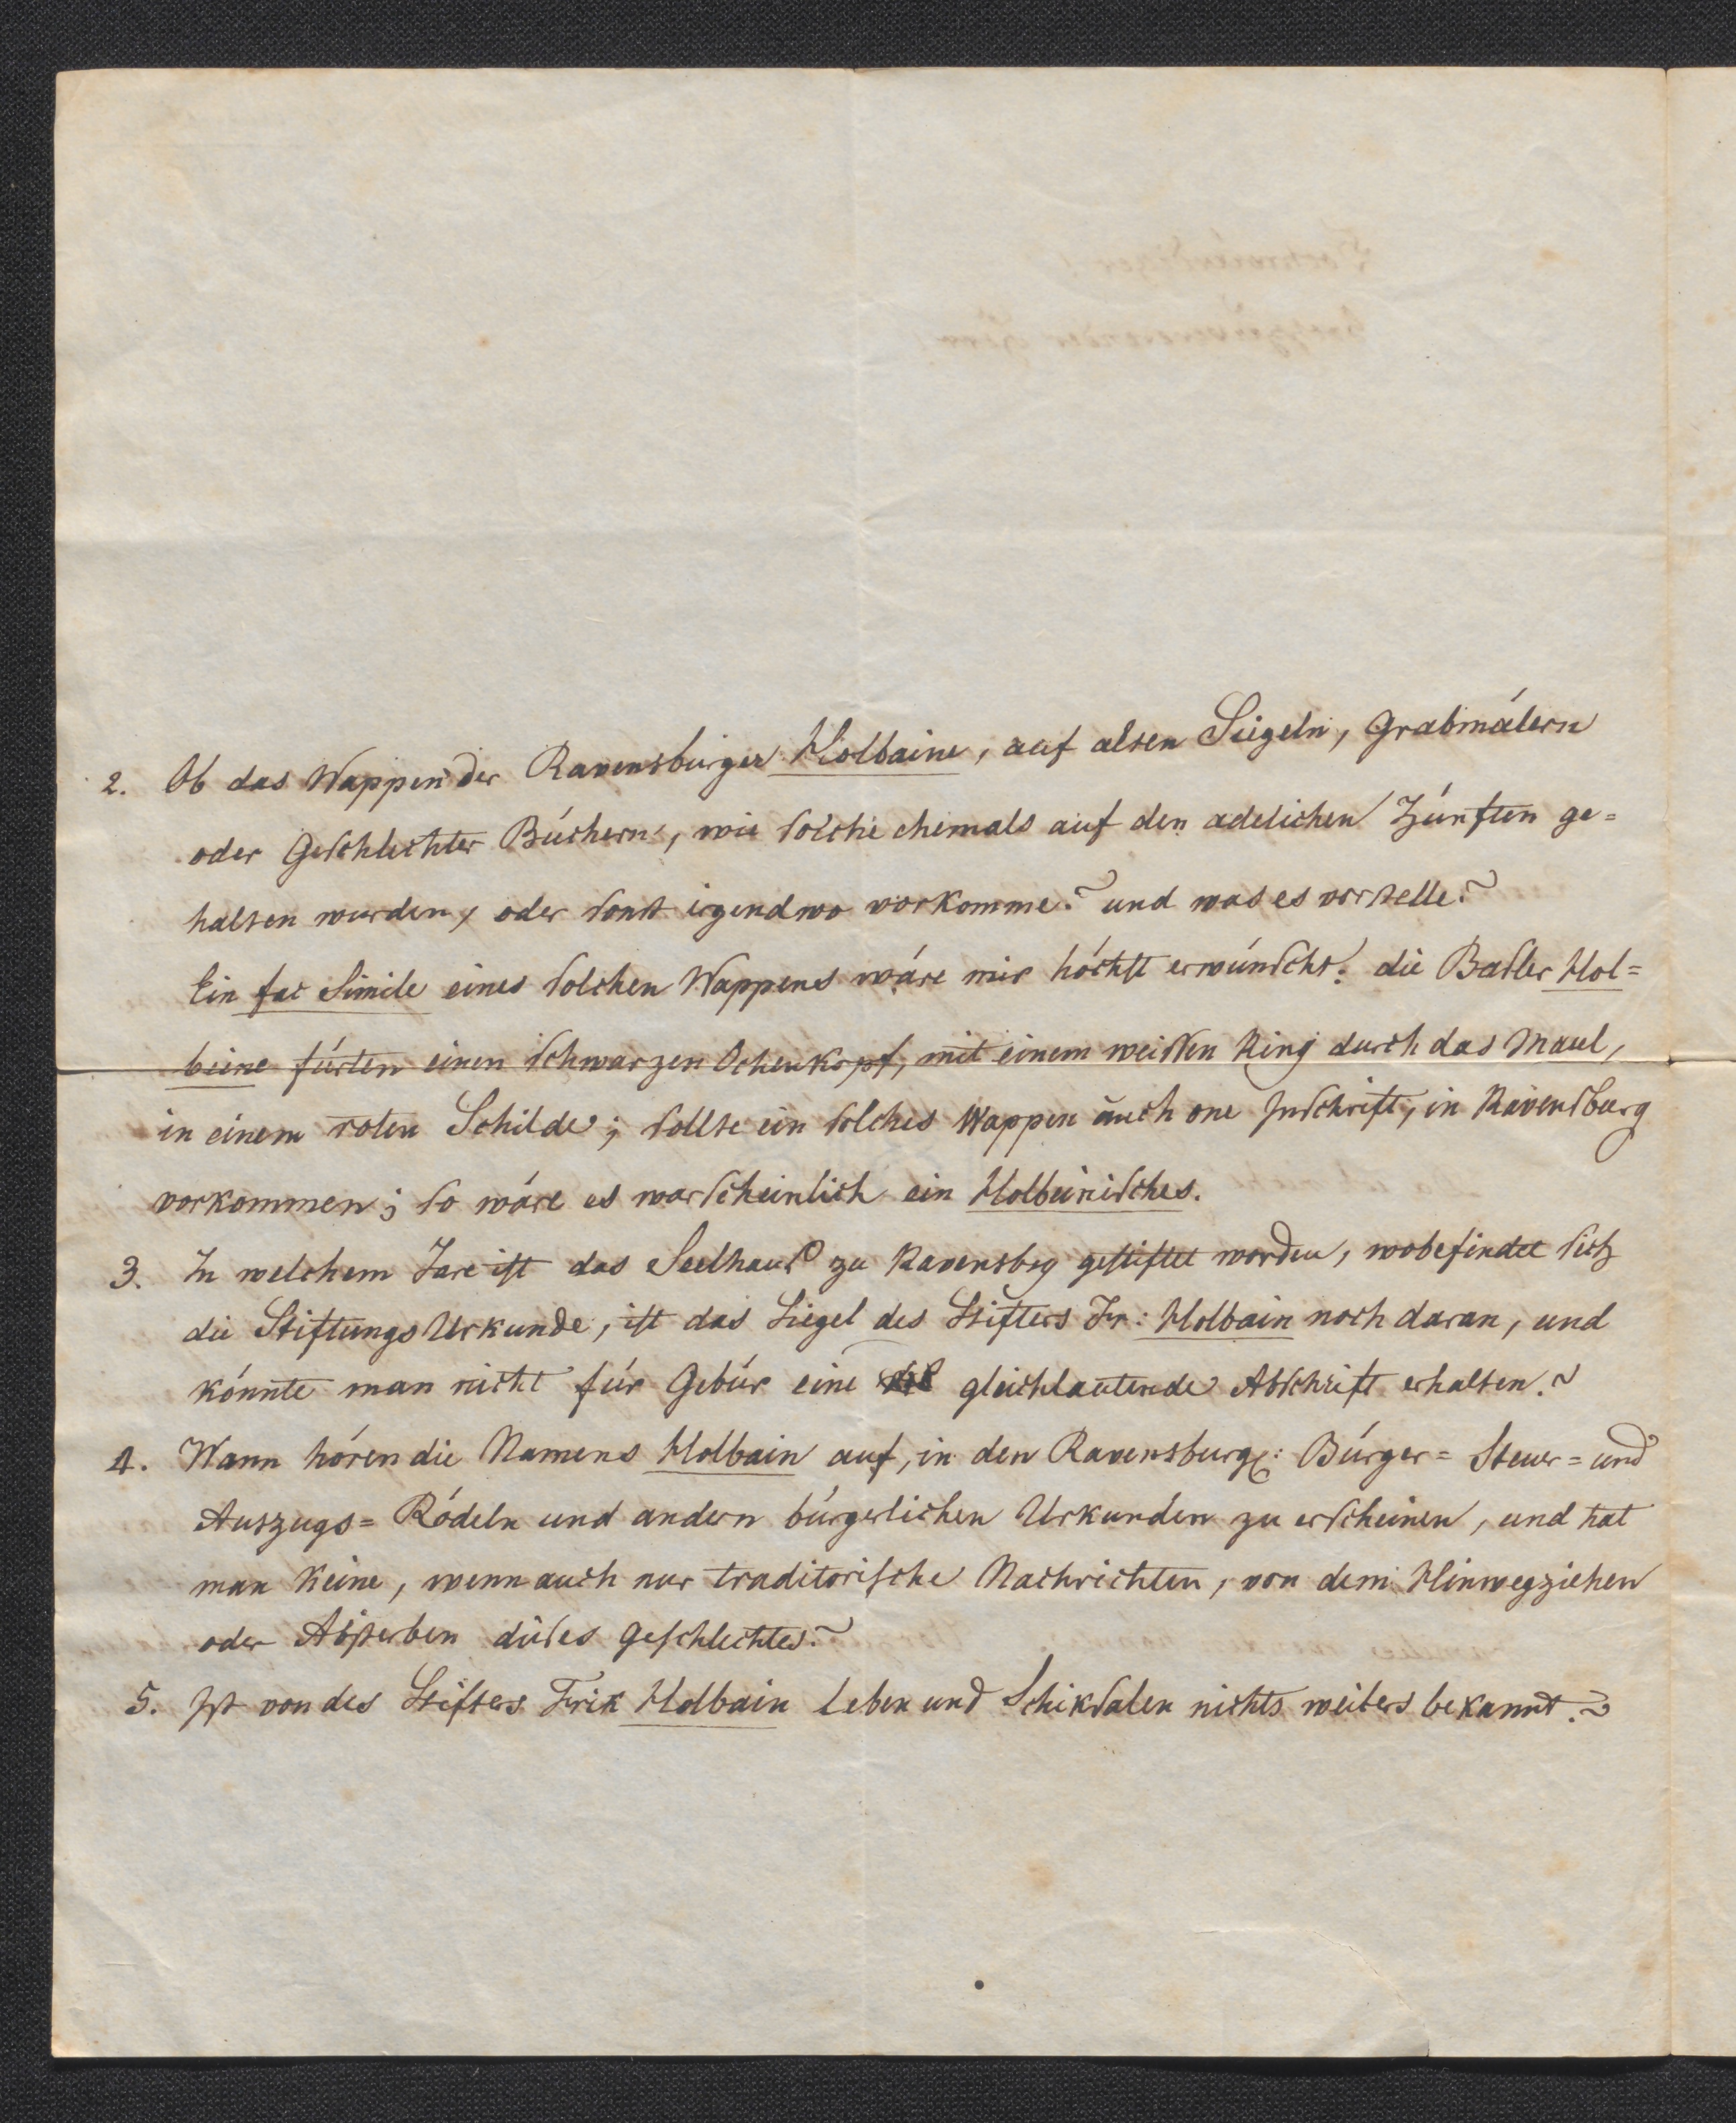 2. Ob das Wappen der Ravensburger Holbaine, auf alten Siegeln, Grabmälern
oder Geschlechter Büchern, wie solche ehmals auf den adelichen Zünften ge=
halten wurden, oder sonst irgendwo vorkomme? und was es vorstelle?
Ein fac Simile eines solchen Wappens wäre mir höchst erwünscht! die Basler Hol=
beine fürten einen schwarzen Ochenkopf, mit einem weissen Ring durch das Maul,
in einem roten Schilde; sollte ein solches Wappen auch one Inschrift, in Ravensburg
vorkommen; so wäre es warscheinlich ein Holbeinisches.
3. In welchem Jare ist das Seelhaus zu Ravensbg gestiftet worden, wo befindet sich
die Stiftungs Urkunde, ist das Siegel des Stifters Fr: Holbain noch daran, und
könnte man nicht für Gebür eine gleichlautende Abschrift erhalten?
4. Wann hören die Namens Holbain auf, in den Ravensburg: Bürger= Steuer= und
Auszugs= Rödeln und andern bürgerlichen Urkunden zu erscheinen, und hat
man keine, wenn auch nur traditorische Nachrichten, von dem Hinwegziehen
oder Absterben dieses Geschlechtes?
5. Ist von des Stifters Frik Holbain Leben und Schiksalen nichts weiters bekannt?